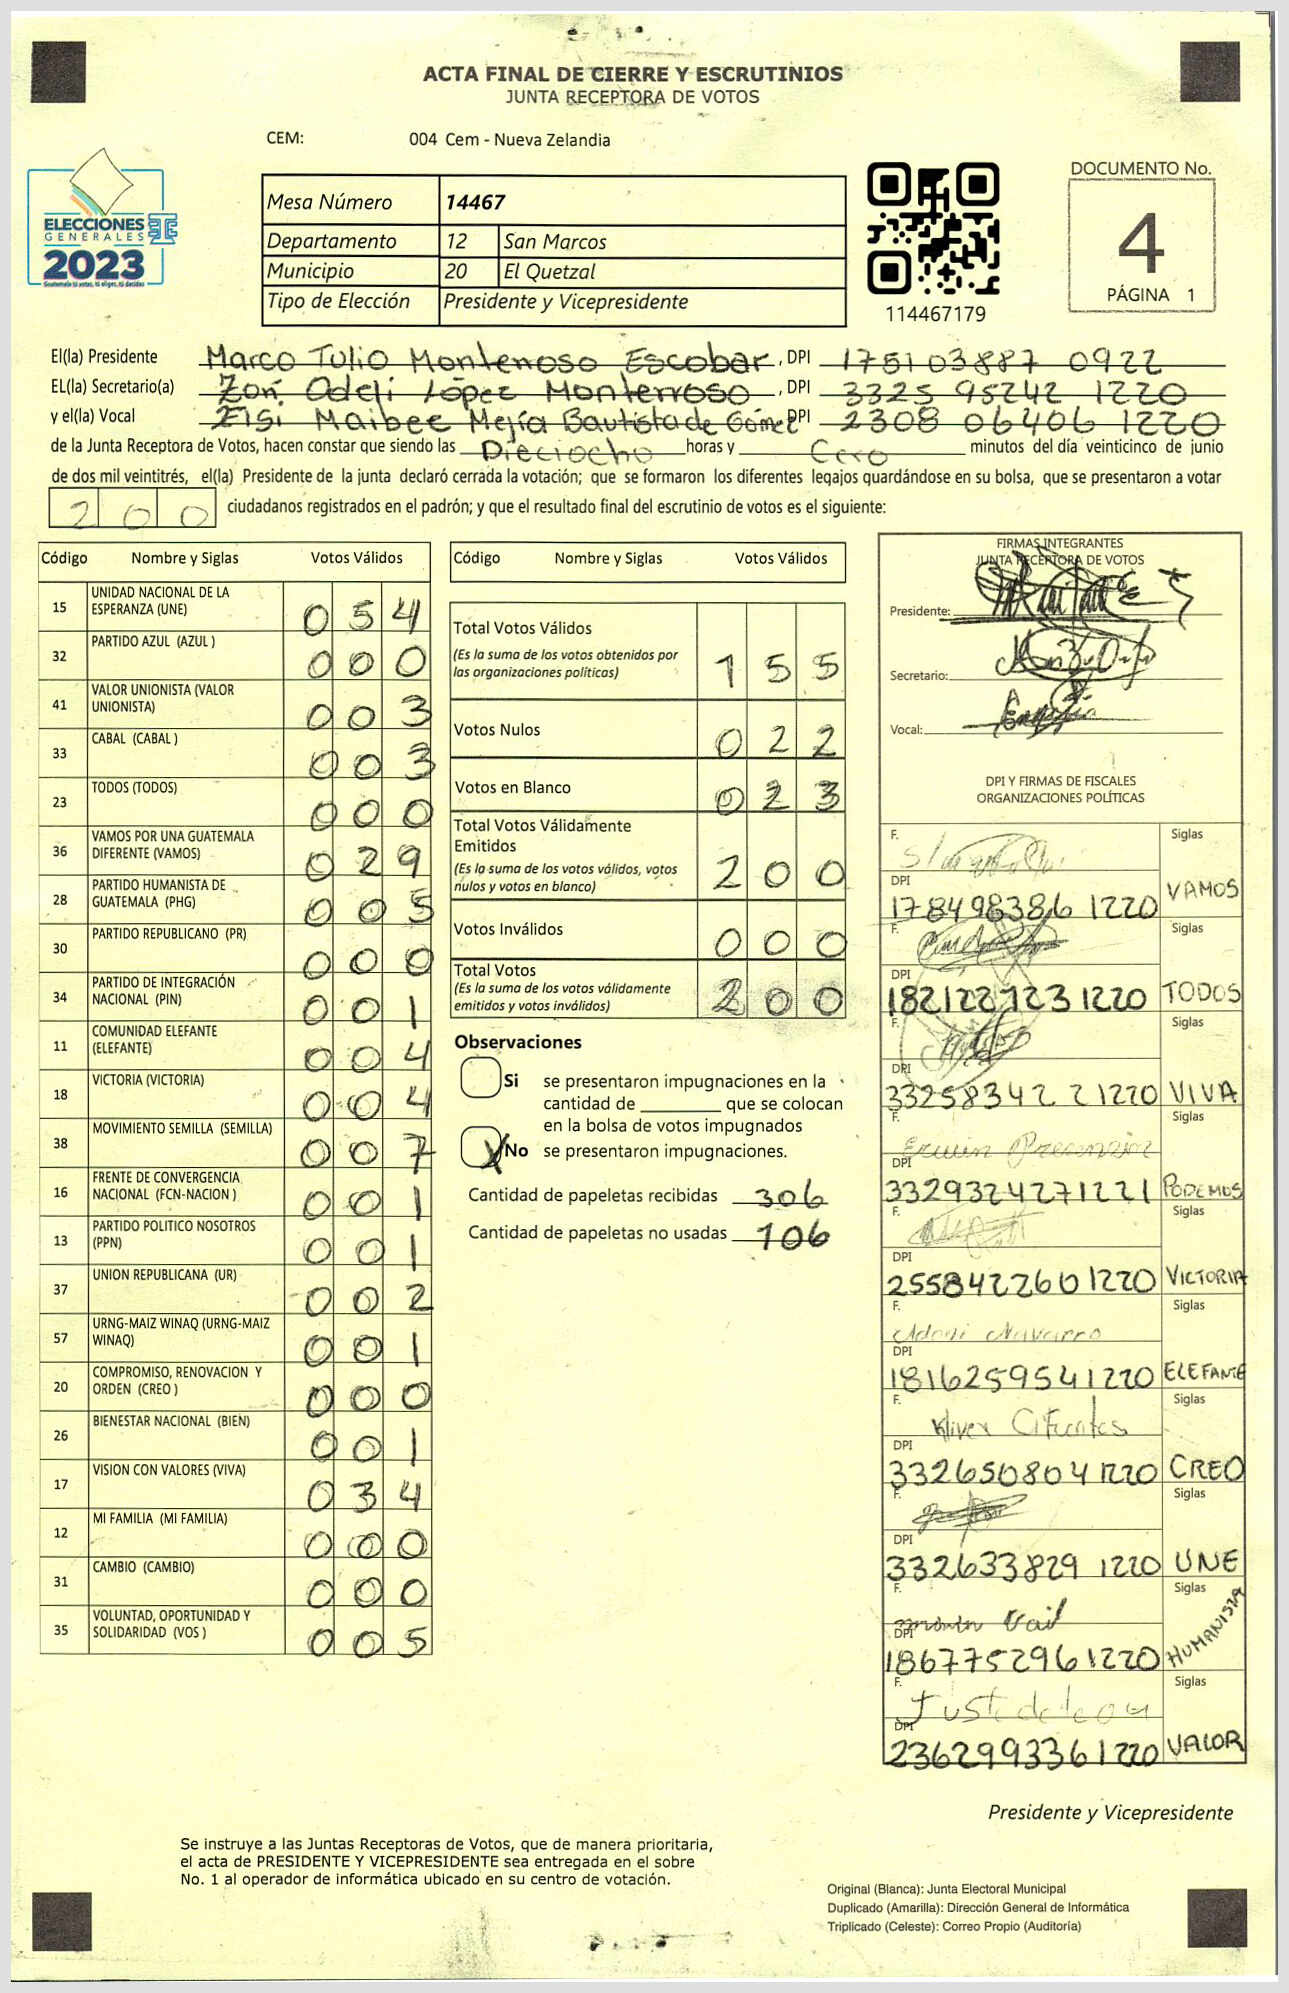 ACTA FINAL DE CIERRE Y ESCRUTINIOS
JUNTA RECEPTORA DE VOTOS
CEM: 004 Cem - Nueva Zelandia
ELECCIONES
GENERALES
2023
Guatemala tú votas, tú eliges, tú decides
Mesa Número 14467
Departamento 12 San Marcos
Municipio 20 El Quetzal
Tipo de Elección Presidente y Vicepresidente
114467179
DOCUMENTO No.
4
PÁGINA 1
El(la) Presidente Marco Tulio Monterroso Escobar, DPI 175103887 0922
EL(la) Secretario(a) Adeli López Monterroso, DPI 3325 95242 1220
y el(la) Vocal Elsi Maibee Mejía Bautista de Gómez DPI 2308 06406 1220
de la Junta Receptora de Votos, hacen constar que siendo las Dieciocho horas y Cero minutos del día veinticinco de junio
de dos mil veintitrés, el(la) Presidente de la junta declaró cerrada la votación; que se formaron los diferentes legajos guardándose en su bolsa, que se presentaron a votar
200 ciudadanos registrados en el padrón; y que el resultado final del escrutinio de votos es el siguiente:
Código Nombre y Siglas Votos Válidos
15 UNIDAD NACIONAL DE LA ESPERANZA (UNE) 054
32 PARTIDO AZUL (AZUL ) 000
41 VALOR UNIONISTA (VALOR UNIONISTA) 003
33 CABAL (CABAL ) 003
23 TODOS (TODOS) 000
36 VAMOS POR UNA GUATEMALA DIFERENTE (VAMOS) 029
28 PARTIDO HUMANISTA DE GUATEMALA (PHG) 005
30 PARTIDO REPUBLICANO (PR) 000
34 PARTIDO DE INTEGRACIÓN NACIONAL (PIN) 001
11 COMUNIDAD ELEFANTE (ELEFANTE) 004
18 VICTORIA (VICTORIA) 004
38 MOVIMIENTO SEMILLA (SEMILLA) 007
16 FRENTE DE CONVERGENCIA NACIONAL (FCN-NACION ) 001
13 PARTIDO POLITICO NOSOTROS (PPN) 001
37 UNION REPUBLICANA (UR) 002
57 URNG-MAIZ WINAQ (URNG-MAIZ WINAQ) 001
20 COMPROMISO, RENOVACION Y ORDEN (CREO ) 000
26 BIENESTAR NACIONAL (BIEN) 001
17 VISION CON VALORES (VIVA) 034
12 MI FAMILIA (MI FAMILIA) 000
31 CAMBIO (CAMBIO) 000
35 VOLUNTAD, OPORTUNIDAD Y SOLIDARIDAD (VOS ) 005
Código Nombre y Siglas Votos Válidos
Total Votos Válidos 155
(Es la suma de los votos obtenidos por
las organizaciones políticas)
Votos Nulos 022
Votos en Blanco 023
Total Votos Válidamente
Emitidos 200
(Es la suma de los votos válidos, votos
nulos y votos en blanco)
Votos Inválidos 000
Total Votos 200
(Es la suma de los votos válidamente
emitidos y votos inválidos)
Observaciones
Si se presentaron impugnaciones en la
cantidad de ________ que se colocan
en la bolsa de votos impugnados
X No se presentaron impugnaciones.
Cantidad de papeletas recibidas 306
Cantidad de papeletas no usadas 106
FIRMAS INTEGRANTES
JUNTA RECEPTORA DE VOTOS
Presidente:
Secretario:
Vocal:
DPI Y FIRMAS DE FISCALES
ORGANIZACIONES POLÍTICAS
F. Siglas
DPI 178498386 1220 VAMOS
F. Siglas
DPI 1220 TODOS
F. Siglas
DPI 33258342 2 1220 VIVA
F. Erwin Siglas
DPI 3329324271221 PODEMOS
F. Siglas
DPI 2558422601220 VICTORIA
F. Navarro Siglas
DPI 1816259541220 ELEFANTE
F. Kliver Cifuentes Siglas
DPI 332650804 1220 CREO
F. Siglas
DPI 332633829 1220 UNE
F. Vail Siglas
DPI 1867752961220 HUMANISTA
F. Siglas
DPI 2362993361220 VALOR
Presidente y Vicepresidente
Se instruye a las Juntas Receptoras de Votos, que de manera prioritaria,
el acta de PRESIDENTE Y VICEPRESIDENTE sea entregada en el sobre
No. 1 al operador de informática ubicado en su centro de votación.
Original (Blanca): Junta Electoral Municipal
Duplicado (Amarilla): Dirección General de Informática
Triplicado (Celeste): Correo Propio (Auditoría)